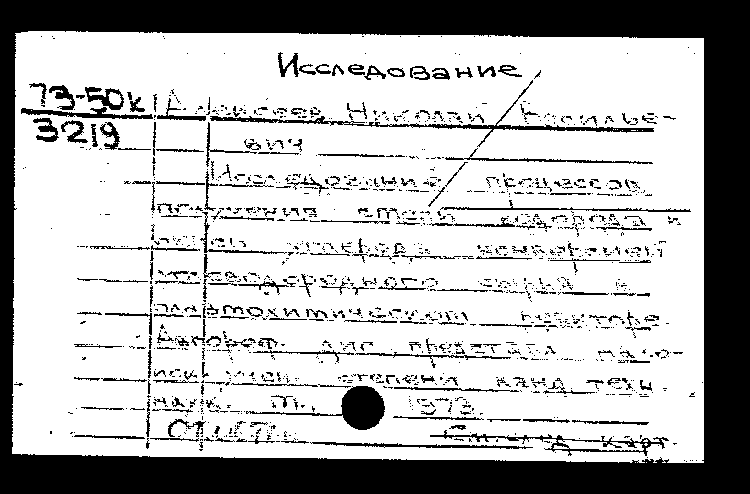 Исследование
73-50к Алексеев Николай Василье-
3219 вич
Исследование процессов
получения смеси водорода и
окиси углерода конверсией
углеводородного сырья в
плазмохимическом реакторе.
Автореф. дис., представл. на со-
иск. учен. степени канд. техн.
наук. М., 1973.
См. след. карт.